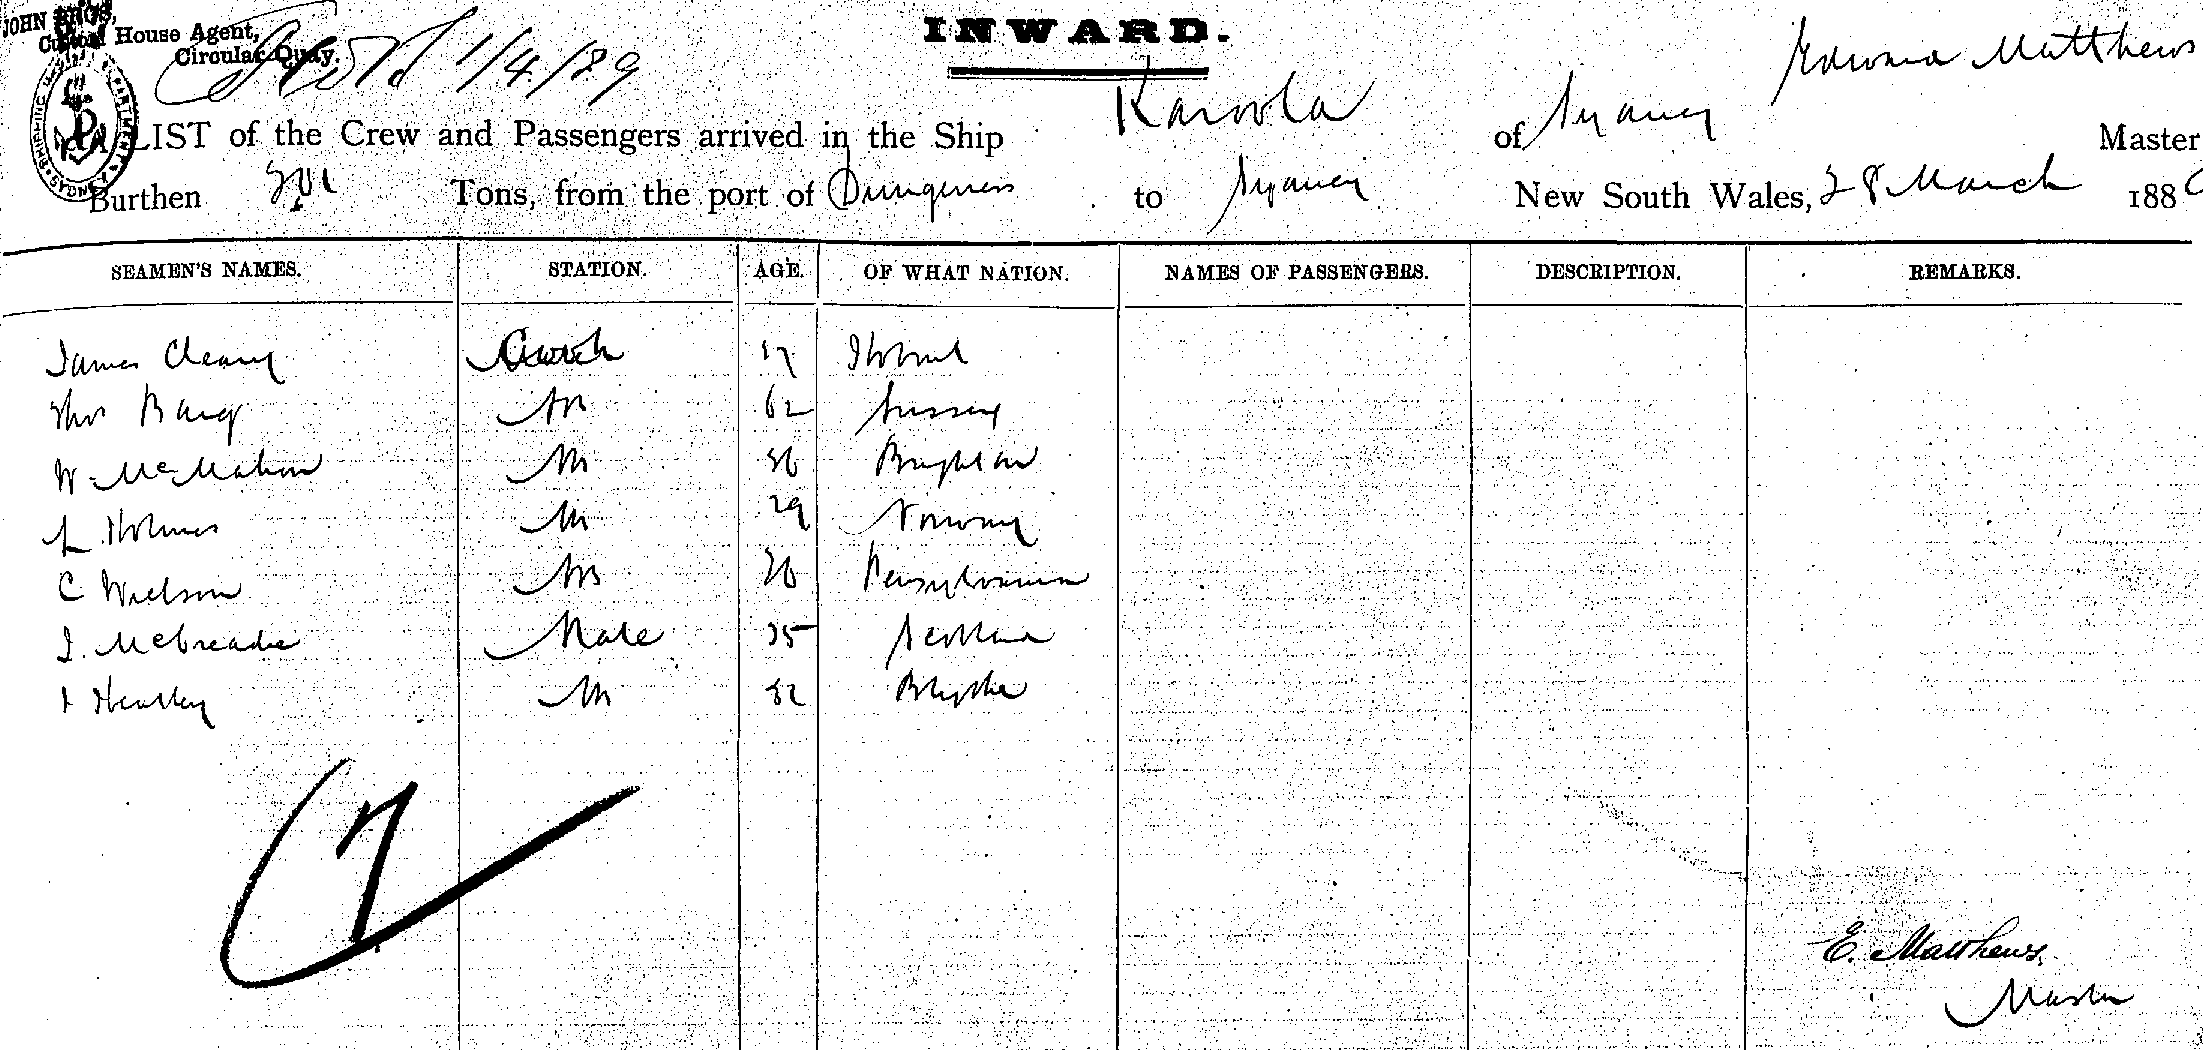 JOHN BROS,
Custom House Agent,
Circular Quay.
1/4/89
INWARD.
Edward Matthews
A LIST of the Crew and Passengers arrived in the Ship Karoola of Sydney Master
Burthen Tons, from the port of Dungeness to Sydney New South Wales, 28 March 188
SEAMEN'S NAMES. STATION. AGE. OF WHAT NATION. NAMES OF PASSENGERS. DESCRIPTION. REMARKS.
James Cleary Hobart
Thos AB 62 Sussex
W. McMahon AB 36 Brighton
L Holmes AB 29 Norway
C Wielson AB 26 Pensylvania
J. McCreadie Mate 35 Scotland
J Heatley AB 32 Blythe
7
E. Matthews.
Master